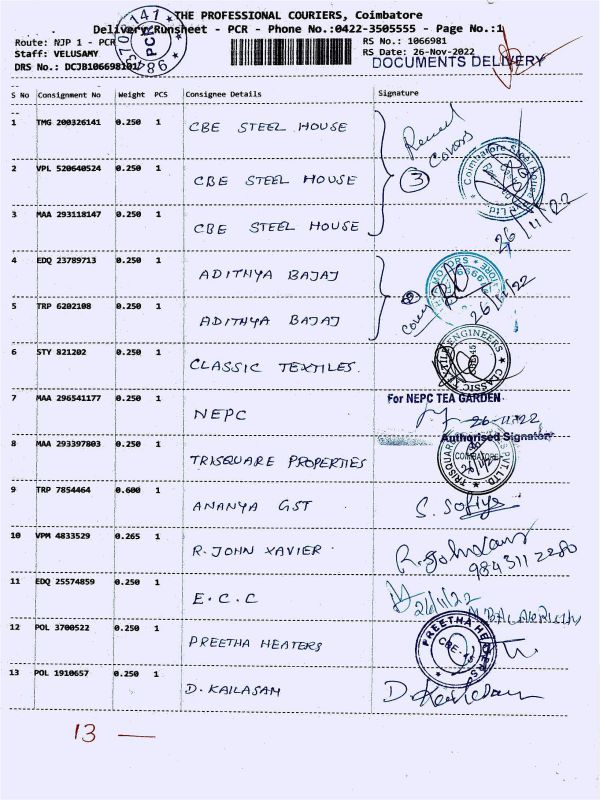 THE PROFESSIONAL COURIERS, Coimbatore
Delivery Runsheet - PCR - Phone No.:0422-3505555 - Page No.:1
Route: NJP 1 - PCR
RS No.: 1066981
Staff: VELUSAMY
RS Date: 26-Nov-2022
DRS No.: DCJB106698101
DOCUMENTS DELIVERY
PCR
S No Consignment No Weight PCS Consignee Details Signature
1 TMG 200326141 0.250 1 CBE STEEL HOUSE
2 VPL 520640524 0.250 1 CBE STEEL HOUSE
3
3 MAA 293118147 0.250 1 CBE STEEL HOUSE
26/11/22
4 EDQ 23789713 0.250 1 ADITHYA BAJAJ
26/11/22
5 TRP 6202108 0.250 1 ADITHYA BAJAJ
6 STY 821202 0.250 1 CLASSIC TEXTILES.
7 MAA 296541177 0.250 1 NEPC
For NEPC TEA GARDEN
26-11-22
Authorised Signatory
8 MAA 293397803 0.250 1 TRISQUARE PROPERTIES
9 TRP 7854464 0.600 1 ANANYA GST S. Sofiya
10 VPM 4833529 0.265 1 R. JOHN XAVIER R. John Xavier
9843112280
11 EDQ 25574859 0.250 1 E.C.C
12 POL 3700522 0.250 1 PREETHA HEATERS
PREETHA HEATERS
CBE-45
13 POL 1910657 0.250 1 D. KAILASAM D. Kailasam
13 —